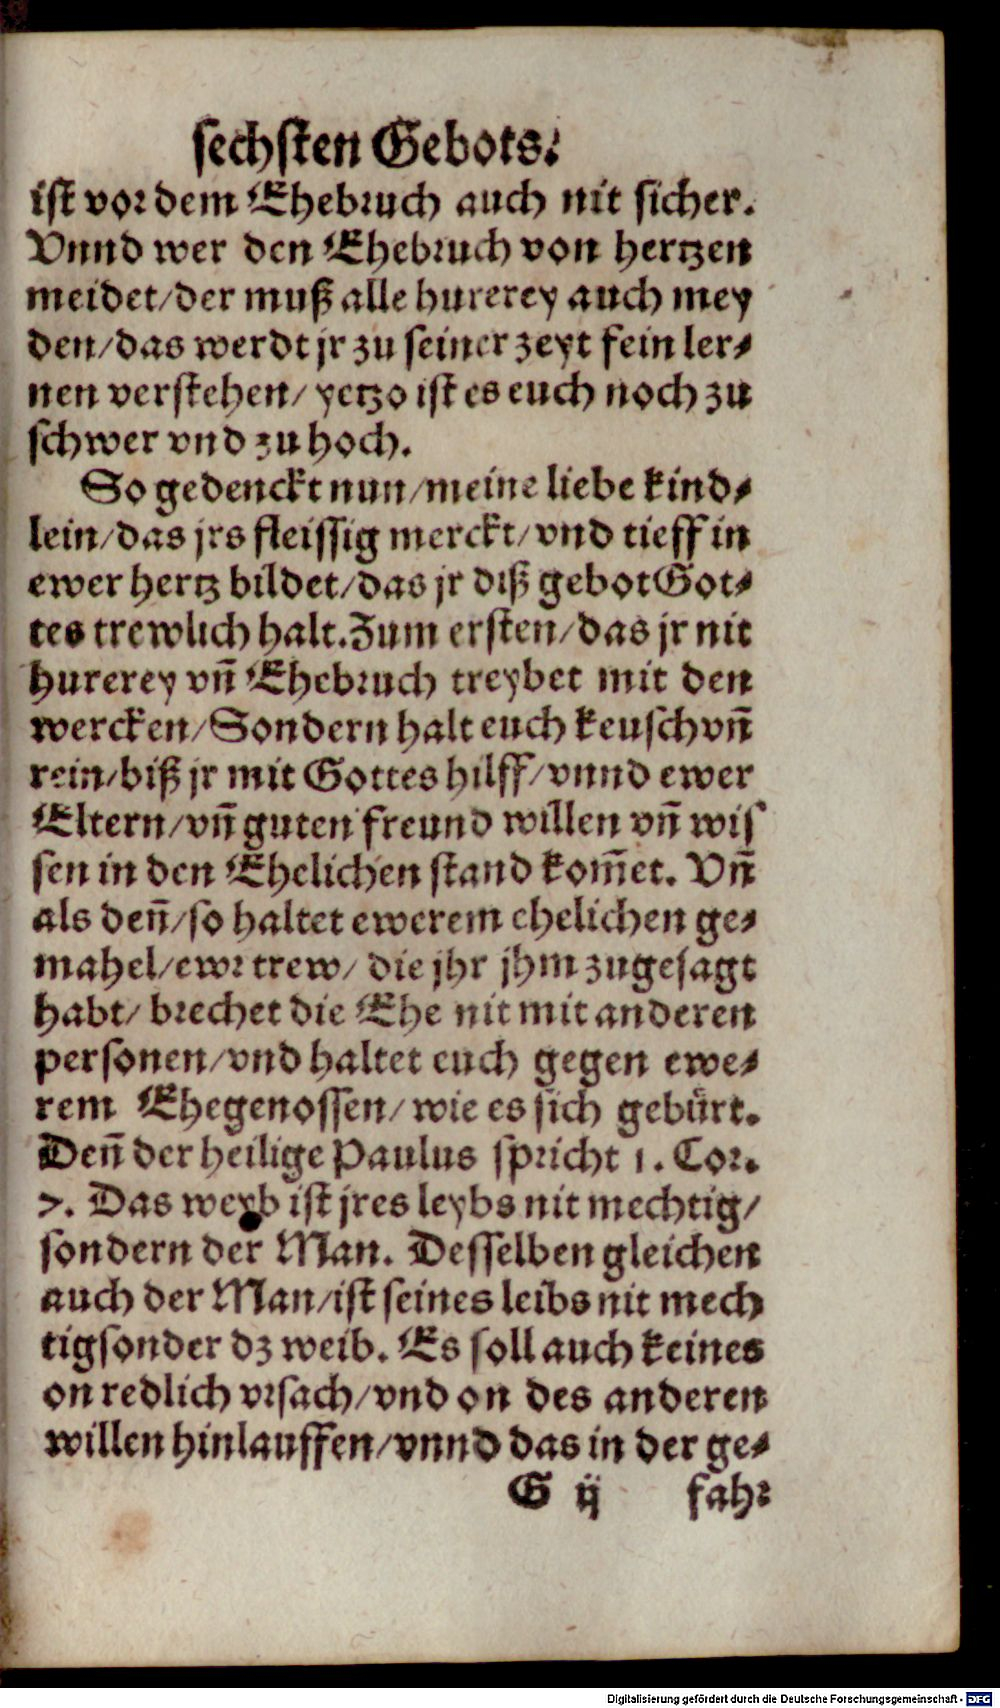 sechsten Gebots.
ist vor dem Ehebruch auch nit sicher.
Vnnd wer den Ehebruch von hertzen
meidet/der muß alle hurerey auch mey
den/das werdt jr zu seiner zeyt fein ler⸗
nen verstehen/ yetzo ist es euch noch zu
schwer vnd zu hoch.
So gedenckt nun/meine liebe kind⸗
lein/das jrs fleissig merckt/vnd tieff in
ewer hertz bildet/das jr diß gebot Got⸗
tes trewlich halt. Zum ersten/das jr nit
hurerey vn̄ Ehebruch treybet mit den
wercken/Sondern halt euch keusch vn̄
rein/biß jr mit Gottes hilff/vnnd ewer
Eltern/vn̄ guten freund willen vn̄ wis
sen in den Ehelichen stand kom̄et. Vn̄
als den̄/so haltet ewerem ehelichen ge⸗
mahel/ewr trew/ die jhr jhm zugesagt
habt/ brechet die Ehe nit mit anderen
personen/vnd haltet euch gegen ewe⸗
rem Ehegenossen/ wie es sich gebürt.
Den̄ der heilige Paulus spricht 1. Cor.
7. Das weyb ist jres leybs nit mechtig/
sondern der Man. Desselben gleichen
auch der Man/ist seines leibs nit mech
tig sonder dz weib. Es soll auch keines
on redlich vrsach/vnd on des anderen
willen hinlauffen/vnnd das in der ge⸗
G ij fahr
Digitalisierung gefördert durch die Deutsche Forschungsgemeinschaft - DFG